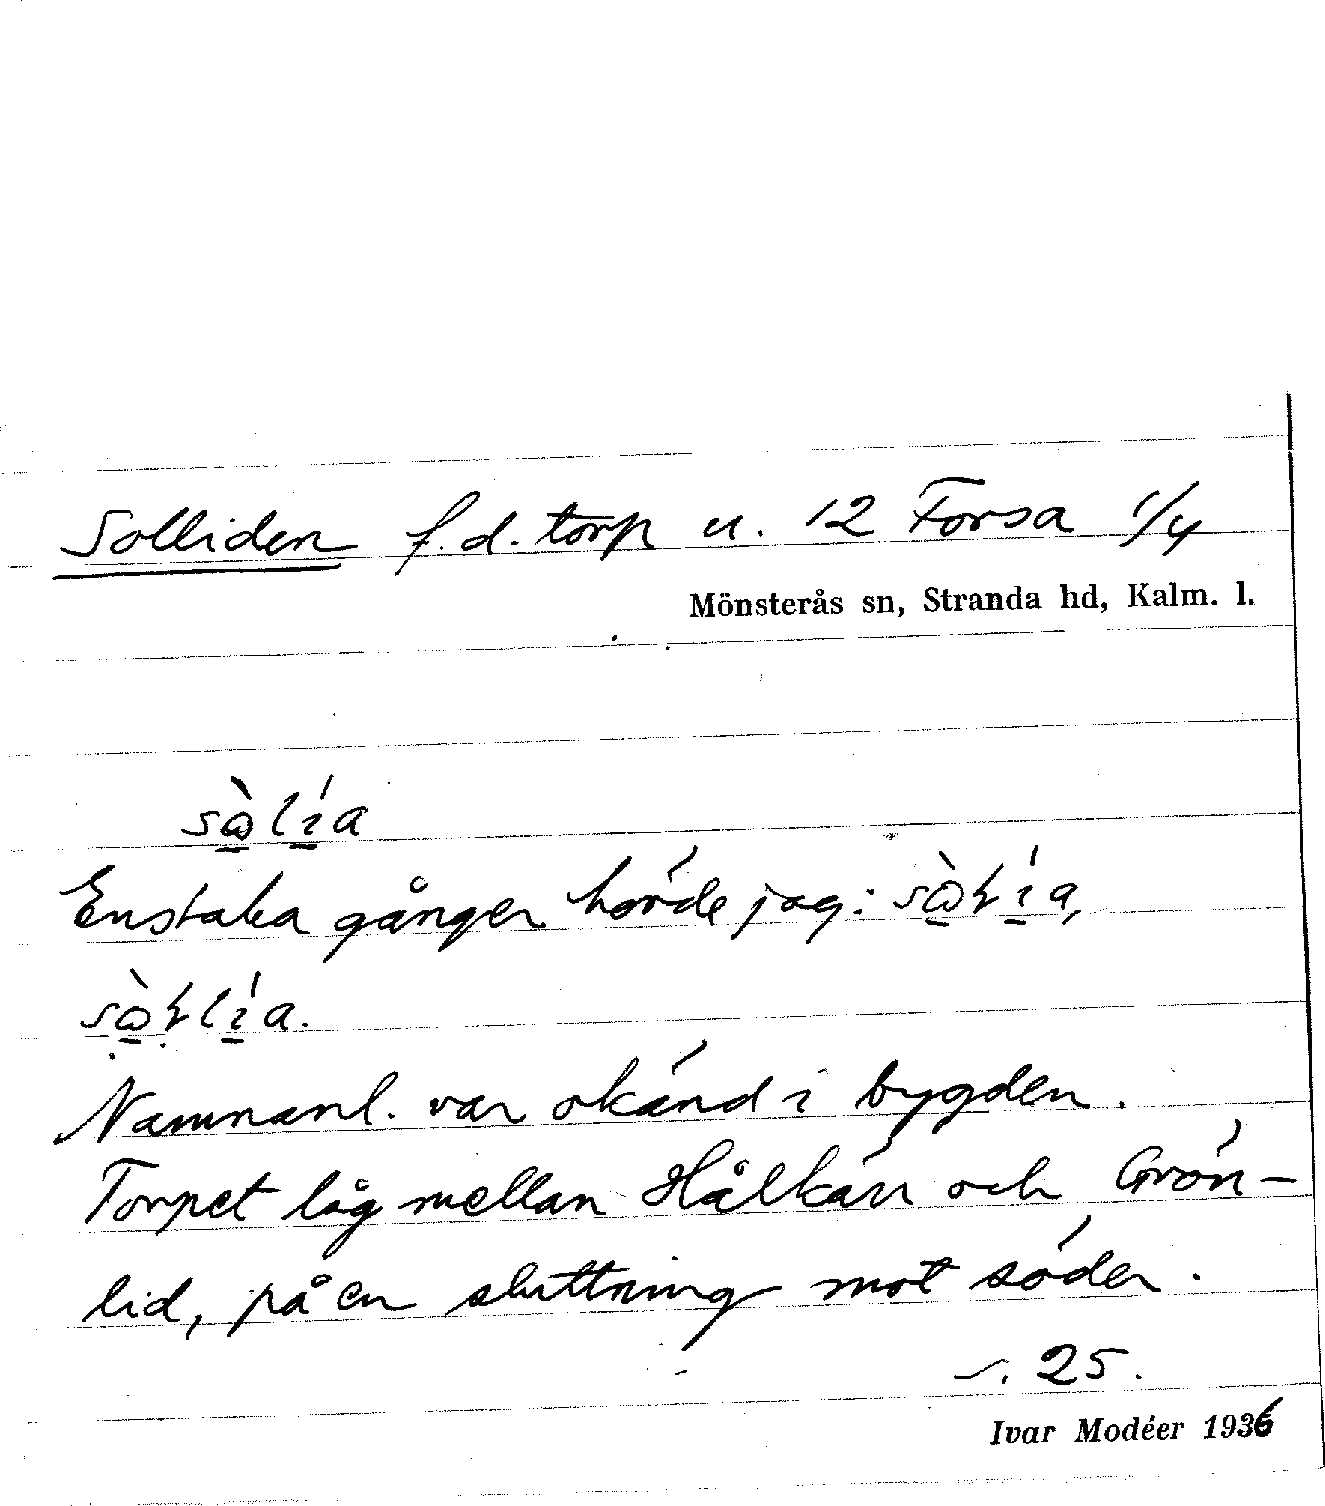 Solliden f.d. torp u. 12 Forsa 1/4
Mönsterås sn, Stranda hd, Kalm. l.
sòlía
Enstaka gånger hörde jag:
Namnanl. var okänd i bygden.
Torpet låg mellan Hålkärr och Grön-
lid, på en sluttning mot söder.
s. 25.
Ivar Modéer 1936